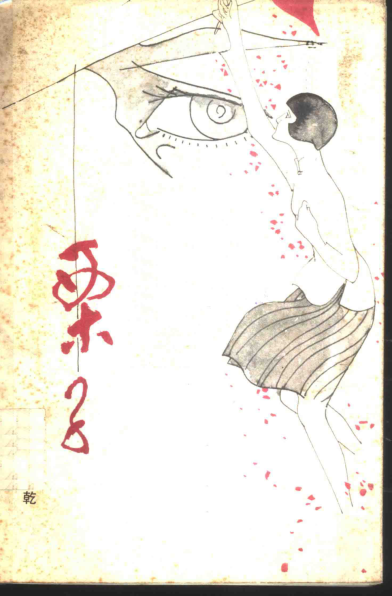 栗子
乾